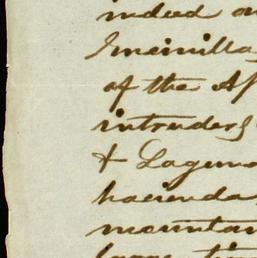 indeed
Encinillas
of the Ap
intruders
& Laguna
hacienda
mountain